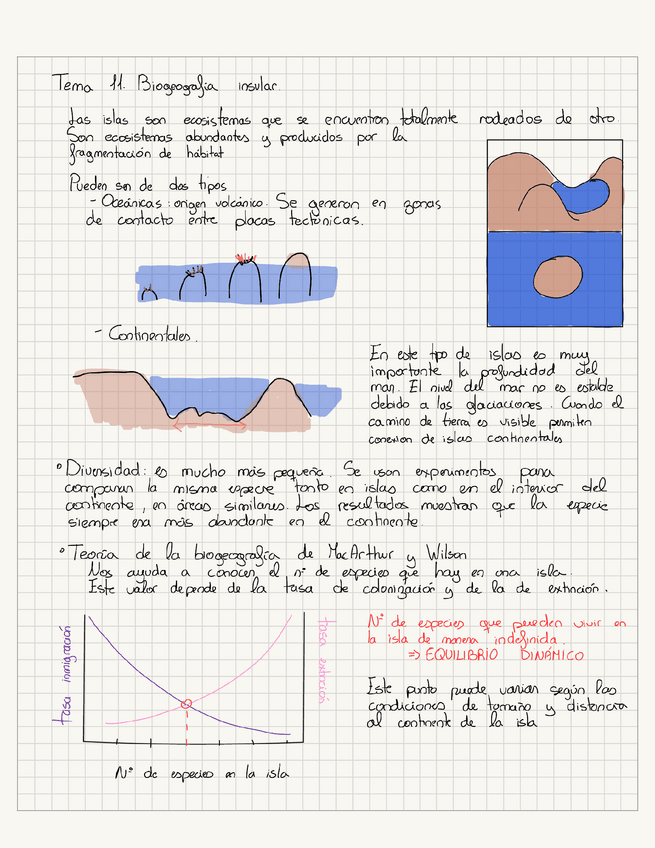 Tema 11. Biogeografía insular.
Las islas son ecosistemas que se encuentran totalmente rodeados de otro.
Son ecosistemas abundantes y producidos por la
fragmentación de hábitat
Pueden ser de dos tipos
- Oceánicas : origen volcánico. Se generan en zonas
de contacto entre placas tectónicas.
- Continentales.
En este tipo de islas es muy
importante la profundidad del
mar. El nivel del mar no es estable
debido a las glaciaciones. Cuando el
camino de tierra es visible permiten
conexion de islas continentales
° Diversidad: es mucho más pequeña. Se usan experimentos para
comparar la misma especie tanto en islas como en el interior del
continente, en áreas similares. Los resultados muestran que la especie
siempre era más abundante en el continente.
° Teoría de la biogeografía de MacArthur y Wilson
Nos ayuda a conocer el nº de especies que hay en una isla.
Este valor depende de la tasa de colonización y de la de extinción.
Nº de especies que pueden vivir en
la isla de manera indefinida.
⇒ EQUILIBRIO DINÁMICO
Este punto puede variar según las
condiciones de tamaño y distancia
al continente de la isla
tasa inmigración
tasa extinción
Nº de especies en la isla